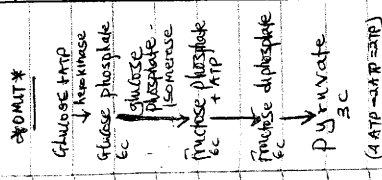 *OMIT*
Glucose + ATP
↓ hexokinase
Glucose phosphate
6c
glucose
phosphate -
isomerase
fructose phosphate
6c + ATP
fructose diphosphate
6c
pyruvate
3c
(4 ATP - 2 ATP = 2 ATP)